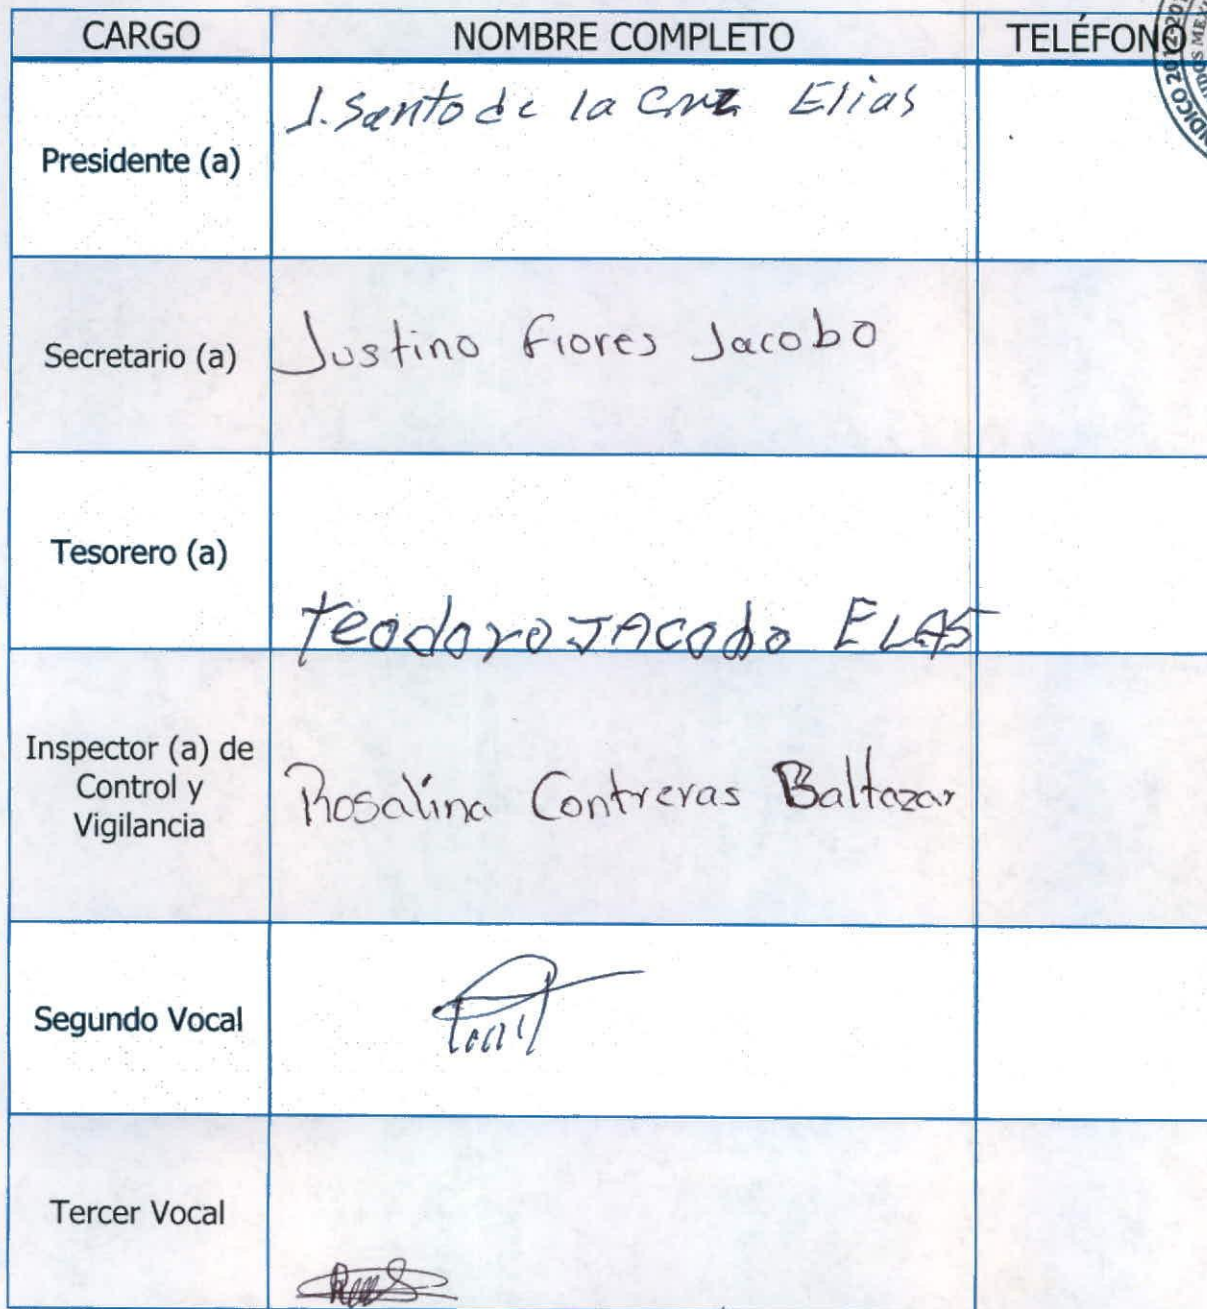 CARGO NOMBRE COMPLETO TELÉFONO
Presidente (a) J. Santo de la Cruz Elias
Secretario (a) Justino Flores Jacobo
Tesorero (a) Teodoro JAcobo ELAS
Inspector (a) de
Control y
Vigilancia
Rosalina Contreras Baltazar
Segundo Vocal
Tercer Vocal